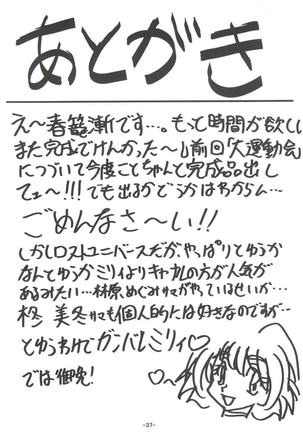 あとがき
え〜春籠漸です…。もっと時間が欲しい
また完成でけんかった〜!前回「大運動会」
につづいて今度こそちゃんと完成品出し
てェ〜!!!でも出るかどうかはわからん…
ごめんなさ〜い!!
しかしロストユニバースだが、やっぱりとゆうか
なんとゆうかミリィよりキャナルの方が人気が
あるみたい…林原めぐみサマがやっているせいか…
柊 美冬サマも個人的には好きなのですが…
とゆうわけでガンバレミリィ♡
では御免!
-37-